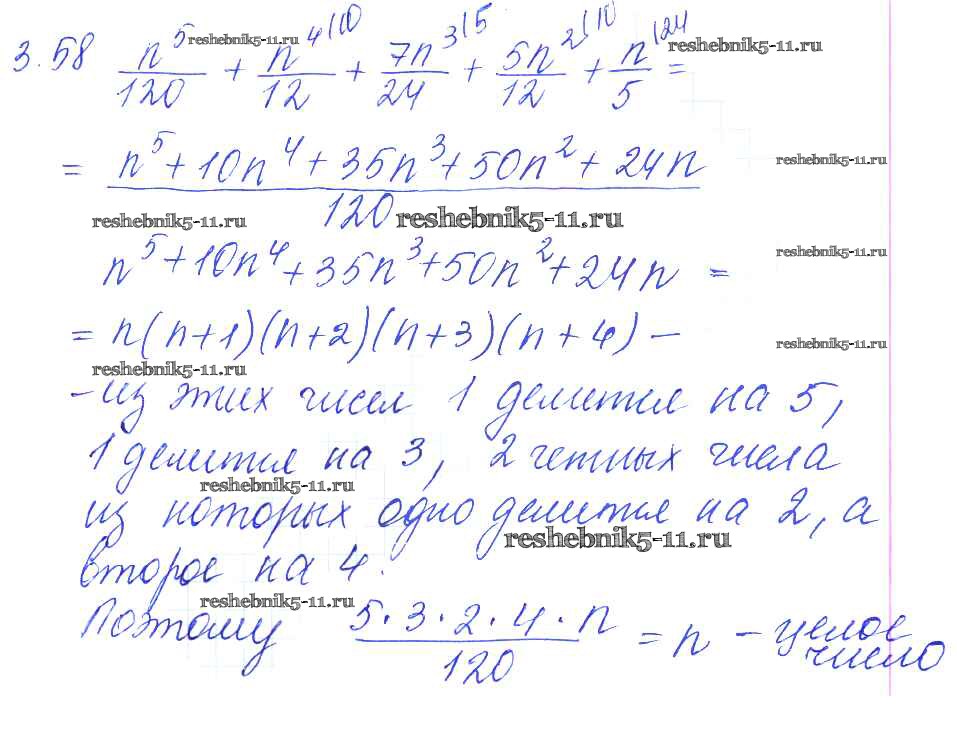 3.58 n⁵/120 + n⁴⁽¹⁰/12 + 7n³⁽⁵/24 + 5n²⁽¹⁰/12 + n⁽²⁴/5 =
reshebnik5-11.ru reshebnik5-11.ru
= (n⁵ + 10n⁴ + 35n³ + 50n² + 24n)/120
reshebnik5-11.ru
reshebnik5-11.ru reshebnik5-11.ru
n⁵ + 10n⁴ + 35n³ + 50n² + 24n =
reshebnik5-11.ru
= n(n+1)(n+2)(n+3)(n+4) –
reshebnik5-11.ru
reshebnik5-11.ru
– из этих чисел 1 делится на 5,
1 делится на 3, 2 четных числа
reshebnik5-11.ru
из которых одно делится на 2, а
reshebnik5-11.ru
второе на 4.
reshebnik5-11.ru
Поэтому (5·3·2·4·n)/120 = n – целое
число